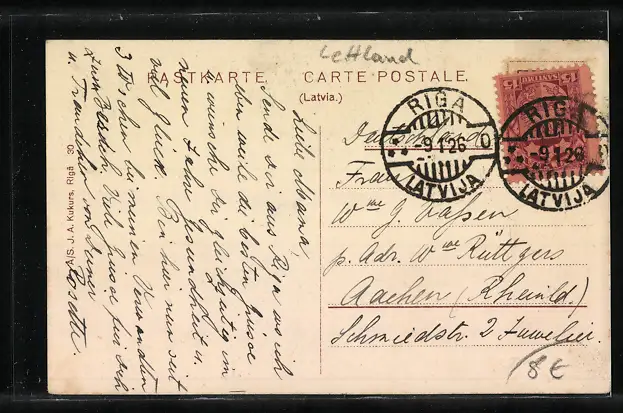 Lettland
PASTKARTE. CARTE POSTALE.
(Latvia.)
RIGA
-9 1 26
D
LATVIJA
RIGA
-9 1 26
LATVIJA
15 SANTIMU 15
Liebe Mama,
Sende dir aus Riga wo ich
eben weile die besten Grüsse
u. wünsche dir gleichzeitig im
neuen Jahre Gesundheit u.
viel Glück. Bin hier nun seit
3 Wochen bei meinen Verwandten
zum Besuch. Viele Grüsse für dich
u. Traudchen von Deiner
Rosette.
Deutschland
Frau
Wwe J. Vassen
p. Adr. Wwe Rüttgers
Aachen (Rheinld.)
Schmiedstr. 2 Juwelier.
8 €
A/S. J. A. Kukurs, Rīgā 30